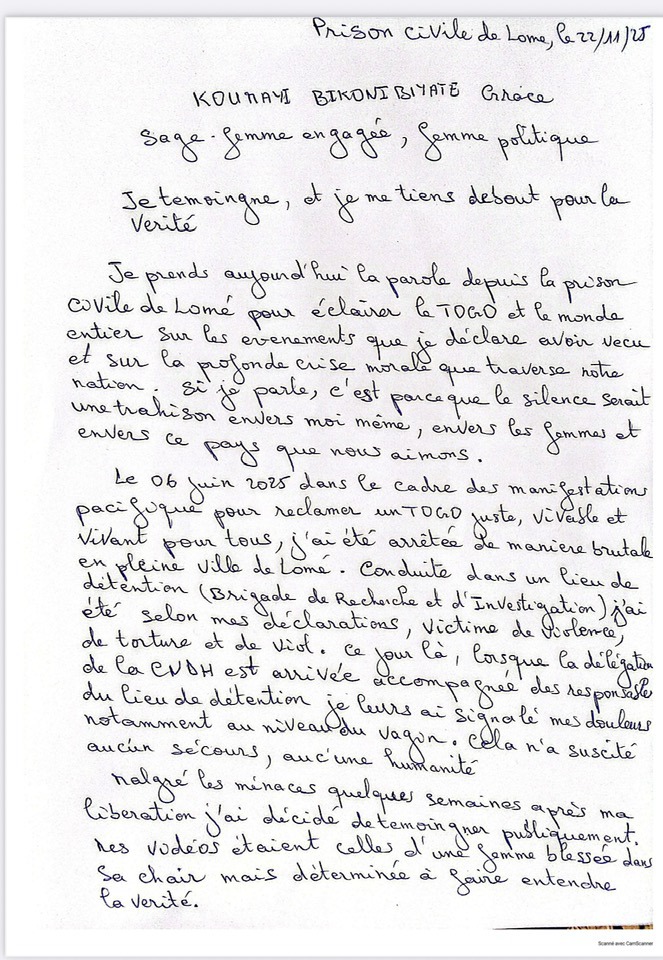 Prison civile de Lome, le 22/11/25
KOUMAYI BIKONIBIYATE Grâce
Sage-femme engagée, femme politique
Je temoingne, et je me tiens debout pour la
Verité
Je prends aujourd'hui la parole depuis la prison
civile de Lomé pour éclairer le TOGO et le monde
entier sur les evenements que je déclare avoir vecu
et sur la profonde crise morale que traverse notre
nation. Si je parle, c'est parce que le silence serait
une trahison envers moi même, envers les femmes et
envers ce pays que nous aimons.
Le 06 juin 2025 dans le cadre des manifestations
pacifique pour reclamer un TOGO juste, vivable et
vivant pour tous, j'ai été arrêtée de maniere brutale
en pleine ville de Lomé. Conduite dans un lieu de
détention (Brigade de Recherche et d'Investigation) j'ai
été selon mes déclarations, victime de violence,
de torture et de viol. Ce jour là, lorsque la délégation
de la CNDH est arrivée accompagnée des responsables
du lieu de détention je leurs ai signalé mes douleurs
notamment au niveau du vagin. Cela n'a suscité
aucun sécours, auc'une humanité
Malgré les ménaces quelques semaines après ma
liberation j'ai décidé de temoingner publiquement.
Mes vidéos étaient celles d'une femme blessée dans
sa chair mais déterminée à faire entendre
la verité.
Scanné avec CamScanner